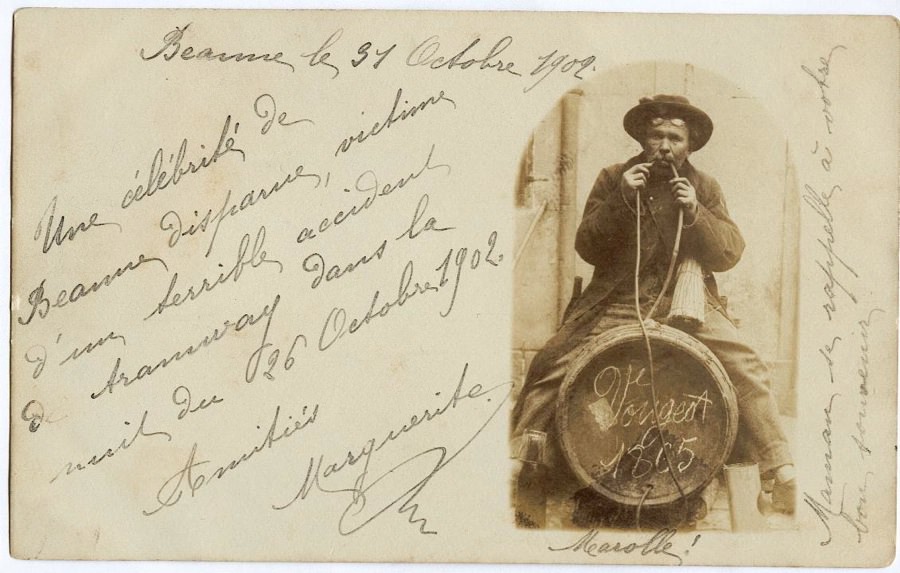 Beaune le 31 Octobre 1902.
Une célébrité de
Beaune disparue, victime
d'un terrible accident
de tramway dans la
nuit du 26 Octobre 1902.
Amitiés
Marguerite.
Vougeot
1865
Marolle!
Maman se rappelle à votre
bon souvenir